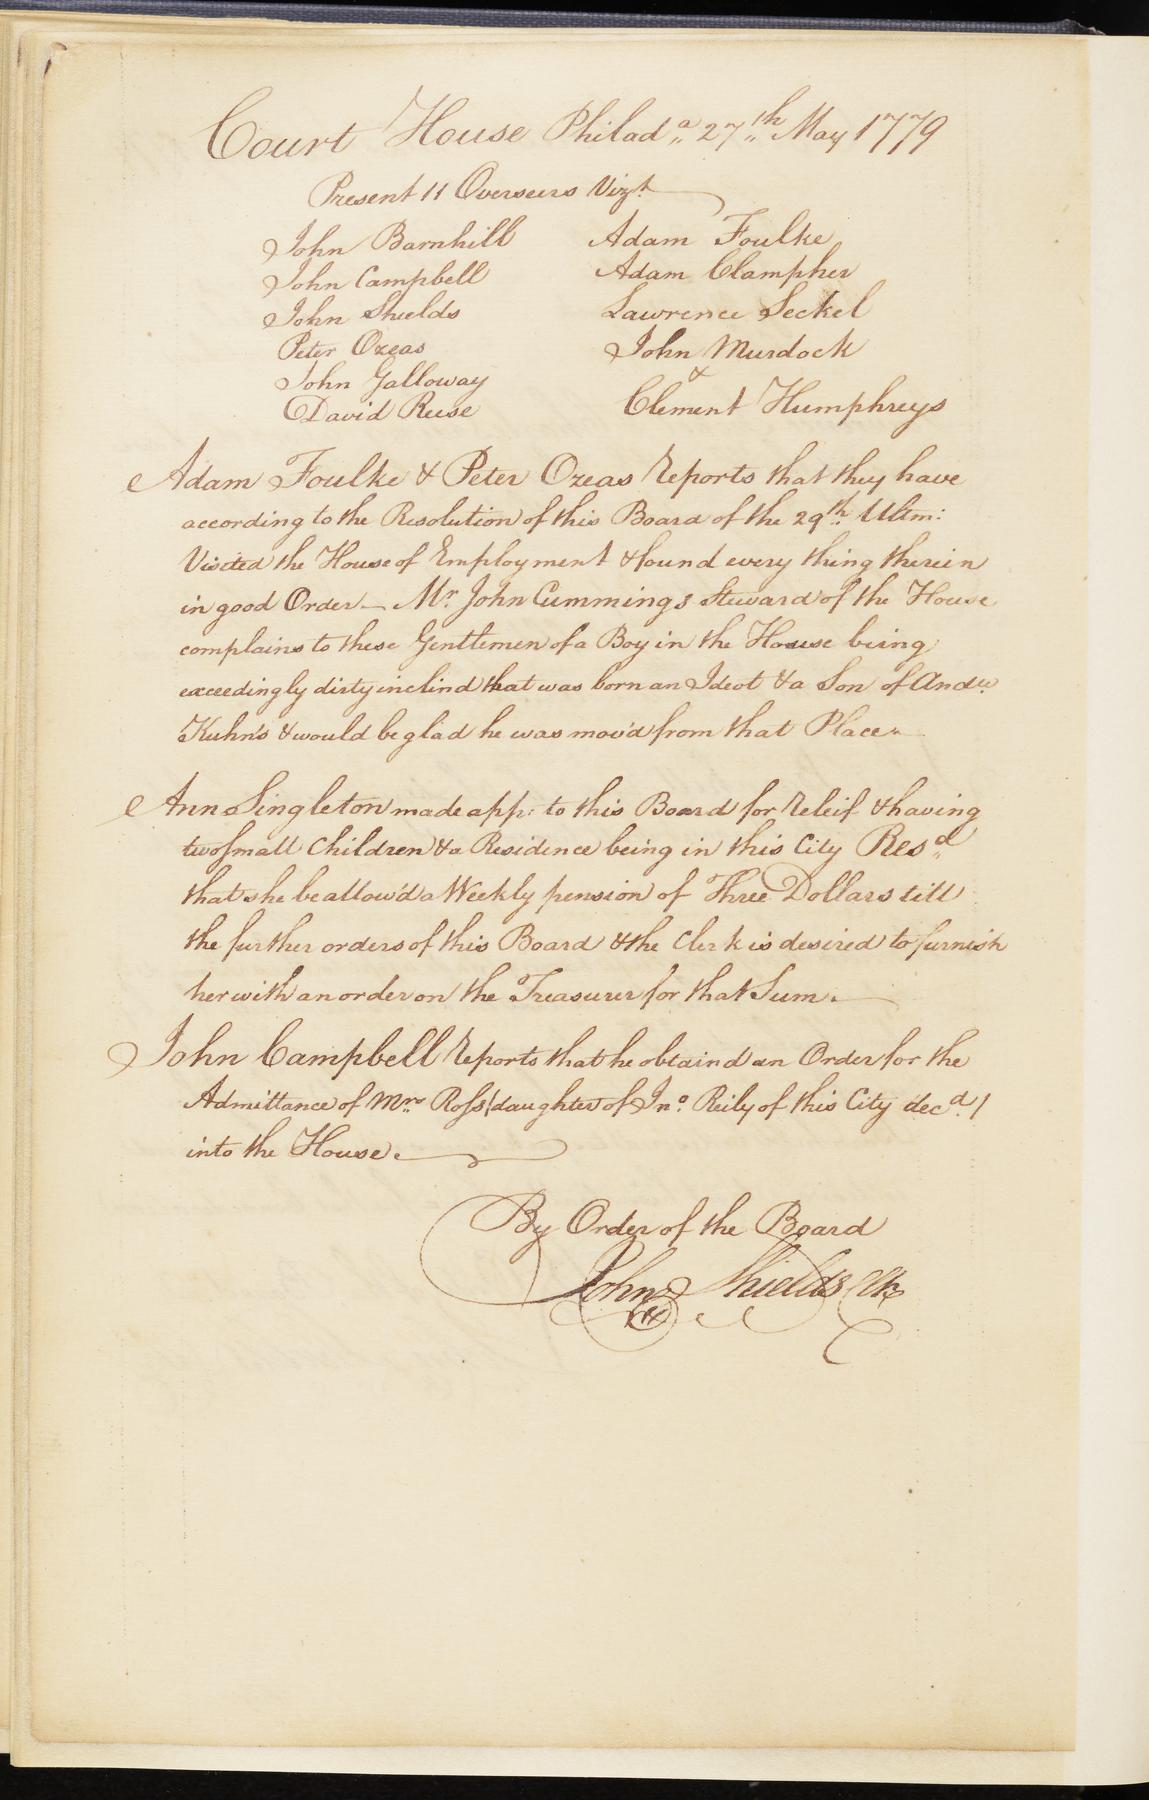 Court House Philada. 27th May 1779
Present 11 Overseers Vizt.
John Barnhill
John Campbell
John Shields
Peter Ozeas
John Galloway
David Reese
Adam Foulke
Adam Clampher
Lawrence Seckel
John Murdock
&
Clement Humphreys
Adam Foulke & Peter Ozeas Reports that they have
according to the Resolution of this Board of the 29th. Ultm:
Visited the House of Employment & found every thing therein
in good Order — Mr. John Cummings Steward of the House
complains to these Gentlemen of a Boy in the House being
exceedingly dirty inclind that was born an Ideot & a Son of Andw.
Kuhn's & would be glad he was mov'd from that Place
Ann Singleton made app: to this Board for Releif & having
two small Children & a Residence being in this City Resd.
that she be allow'd a Weekly pension of Three Dollars till
the further orders of this Board & the Clerk is desired to furnish
her with an order on the Treasurer for that Sum.
John Campbell Reports that he obtaind an Order for the
Admittance of Mrs. Ross / daughter of Jno. Reily of this City decd. /
into the House.
By Order of the Board
John Shields Clk